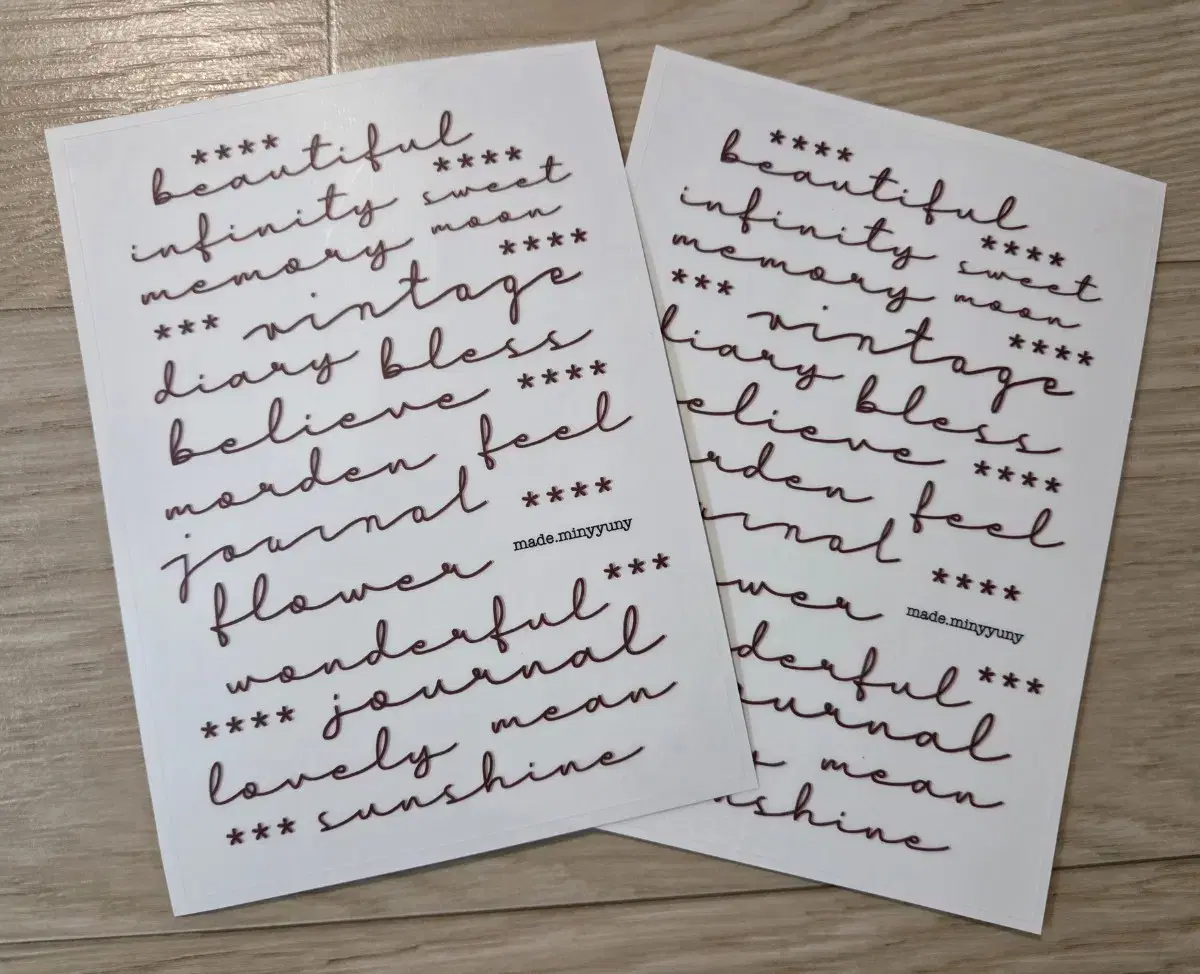 ****
beautiful
****
infinity sweet
memory moon
****
*** vintage
diary bless
believe ****
morden feel
journal ****
made.minyyuny
flower
***
wonderful
**** journal
lovely mean
*** sunshine
****
beautiful
****
infinity sweet
memory moon
*** vintage ****
liary bless
elieve ****
rden feel
urnal ****
made.minyyuny
wer
derful ***
urnal
mean
nshine